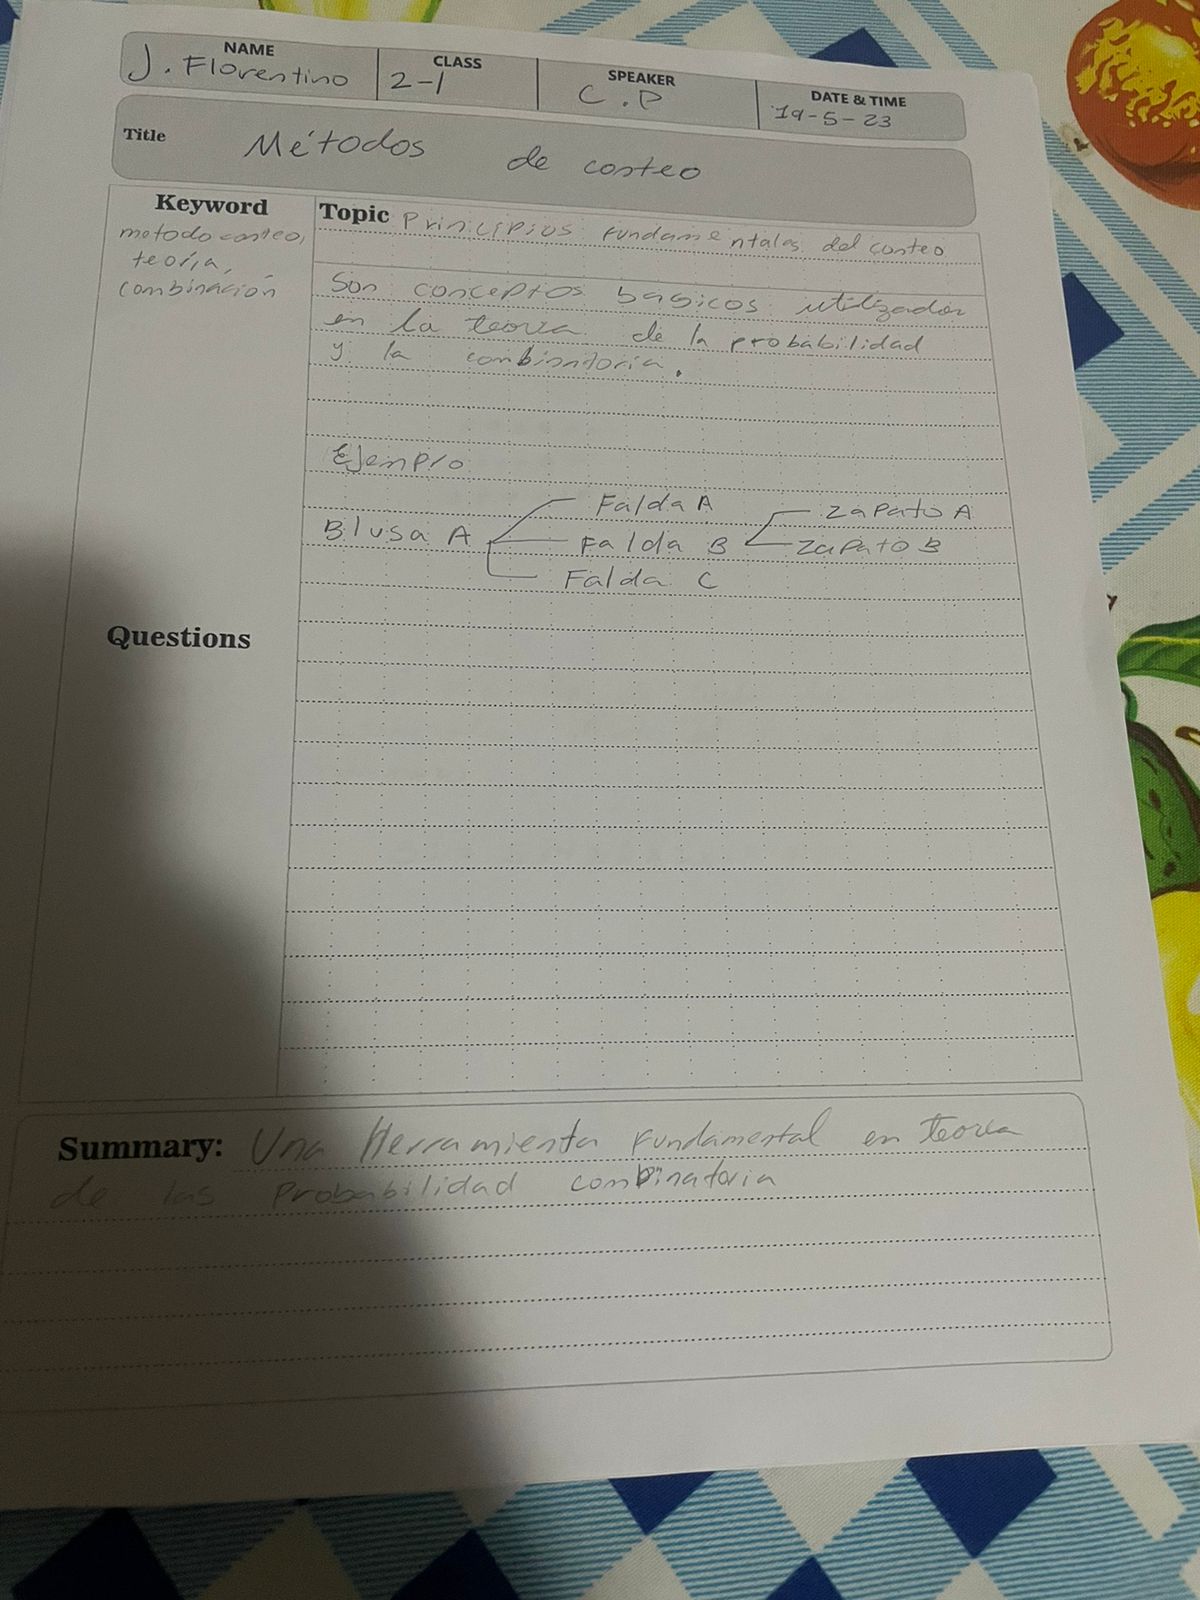 NAME CLASS SPEAKER DATE & TIME
J. Florentino 2-1 C.P 19-5-23
Title Métodos de conteo
Keyword
metodo conteo,
teoría,
combinación
Topic Principios fundamentales del conteo
Son conceptos básicos utilizados
en la teoria de la probabilidad
y la combinatoria.
Ejemplo
Falda A Zapato A
Blusa A Falda B Zapato B
Falda C
Questions
Summary: Una Herramienta Fundamental en teoria
de las Probabilidad combinatoria